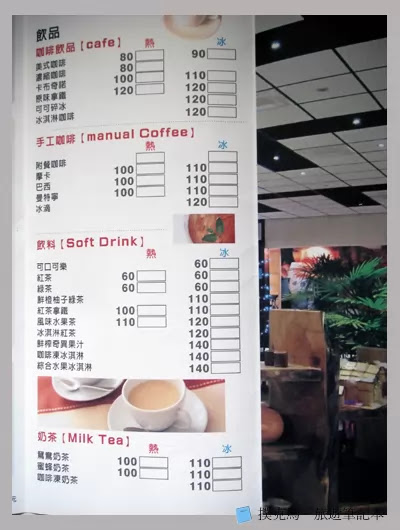 飲品
咖啡飲品【cafe】 熱 冰
美式咖啡 80 90
濃縮咖啡 80
卡布奇諾 100 110
原味拿鐵 120 120
可可碎冰 120
冰淇淋咖啡 120
手工咖啡【manual Coffee】
熱 冰
附餐咖啡
摩卡 100 110
巴西 100 110
曼特寧 100 110
冰滴 120
飲料【Soft Drink】
熱 冰
可口可樂 60
紅茶 60 60
綠茶 60 60
鮮橙柚子綠茶 110
紅茶拿鐵 100 110
風味水果茶 110 120
冰淇淋紅茶 120
鮮榨奇異果汁 140
咖啡凍冰淇淋 140
綜合水果冰淇淋 140
奶茶【Milk Tea】 熱 冰
鴛鴦奶茶 100 110
蜜蜂奶茶 100 110
咖啡凍奶茶 110
元